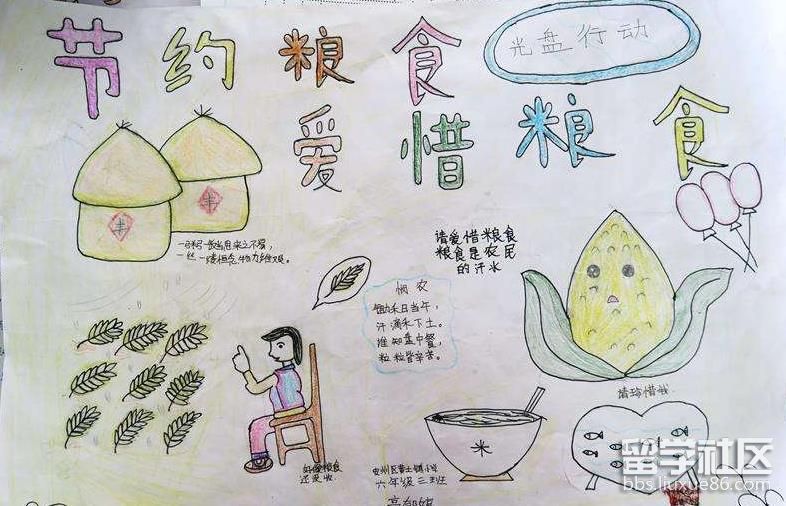 节约粮食
光盘行动
爱惜粮食
丰
丰
一粥一饭当思来之不易，
一丝一缕恒念物力维艰。
请爱惜粮食
粮食是农民
的汗水
悯农
锄禾日当午，
汗滴禾下土。
谁知盘中餐，
粒粒皆辛苦。
请珍惜我
米
好像粮食
还没收
六年级三班
留学社区
bbs.liuxue86.com